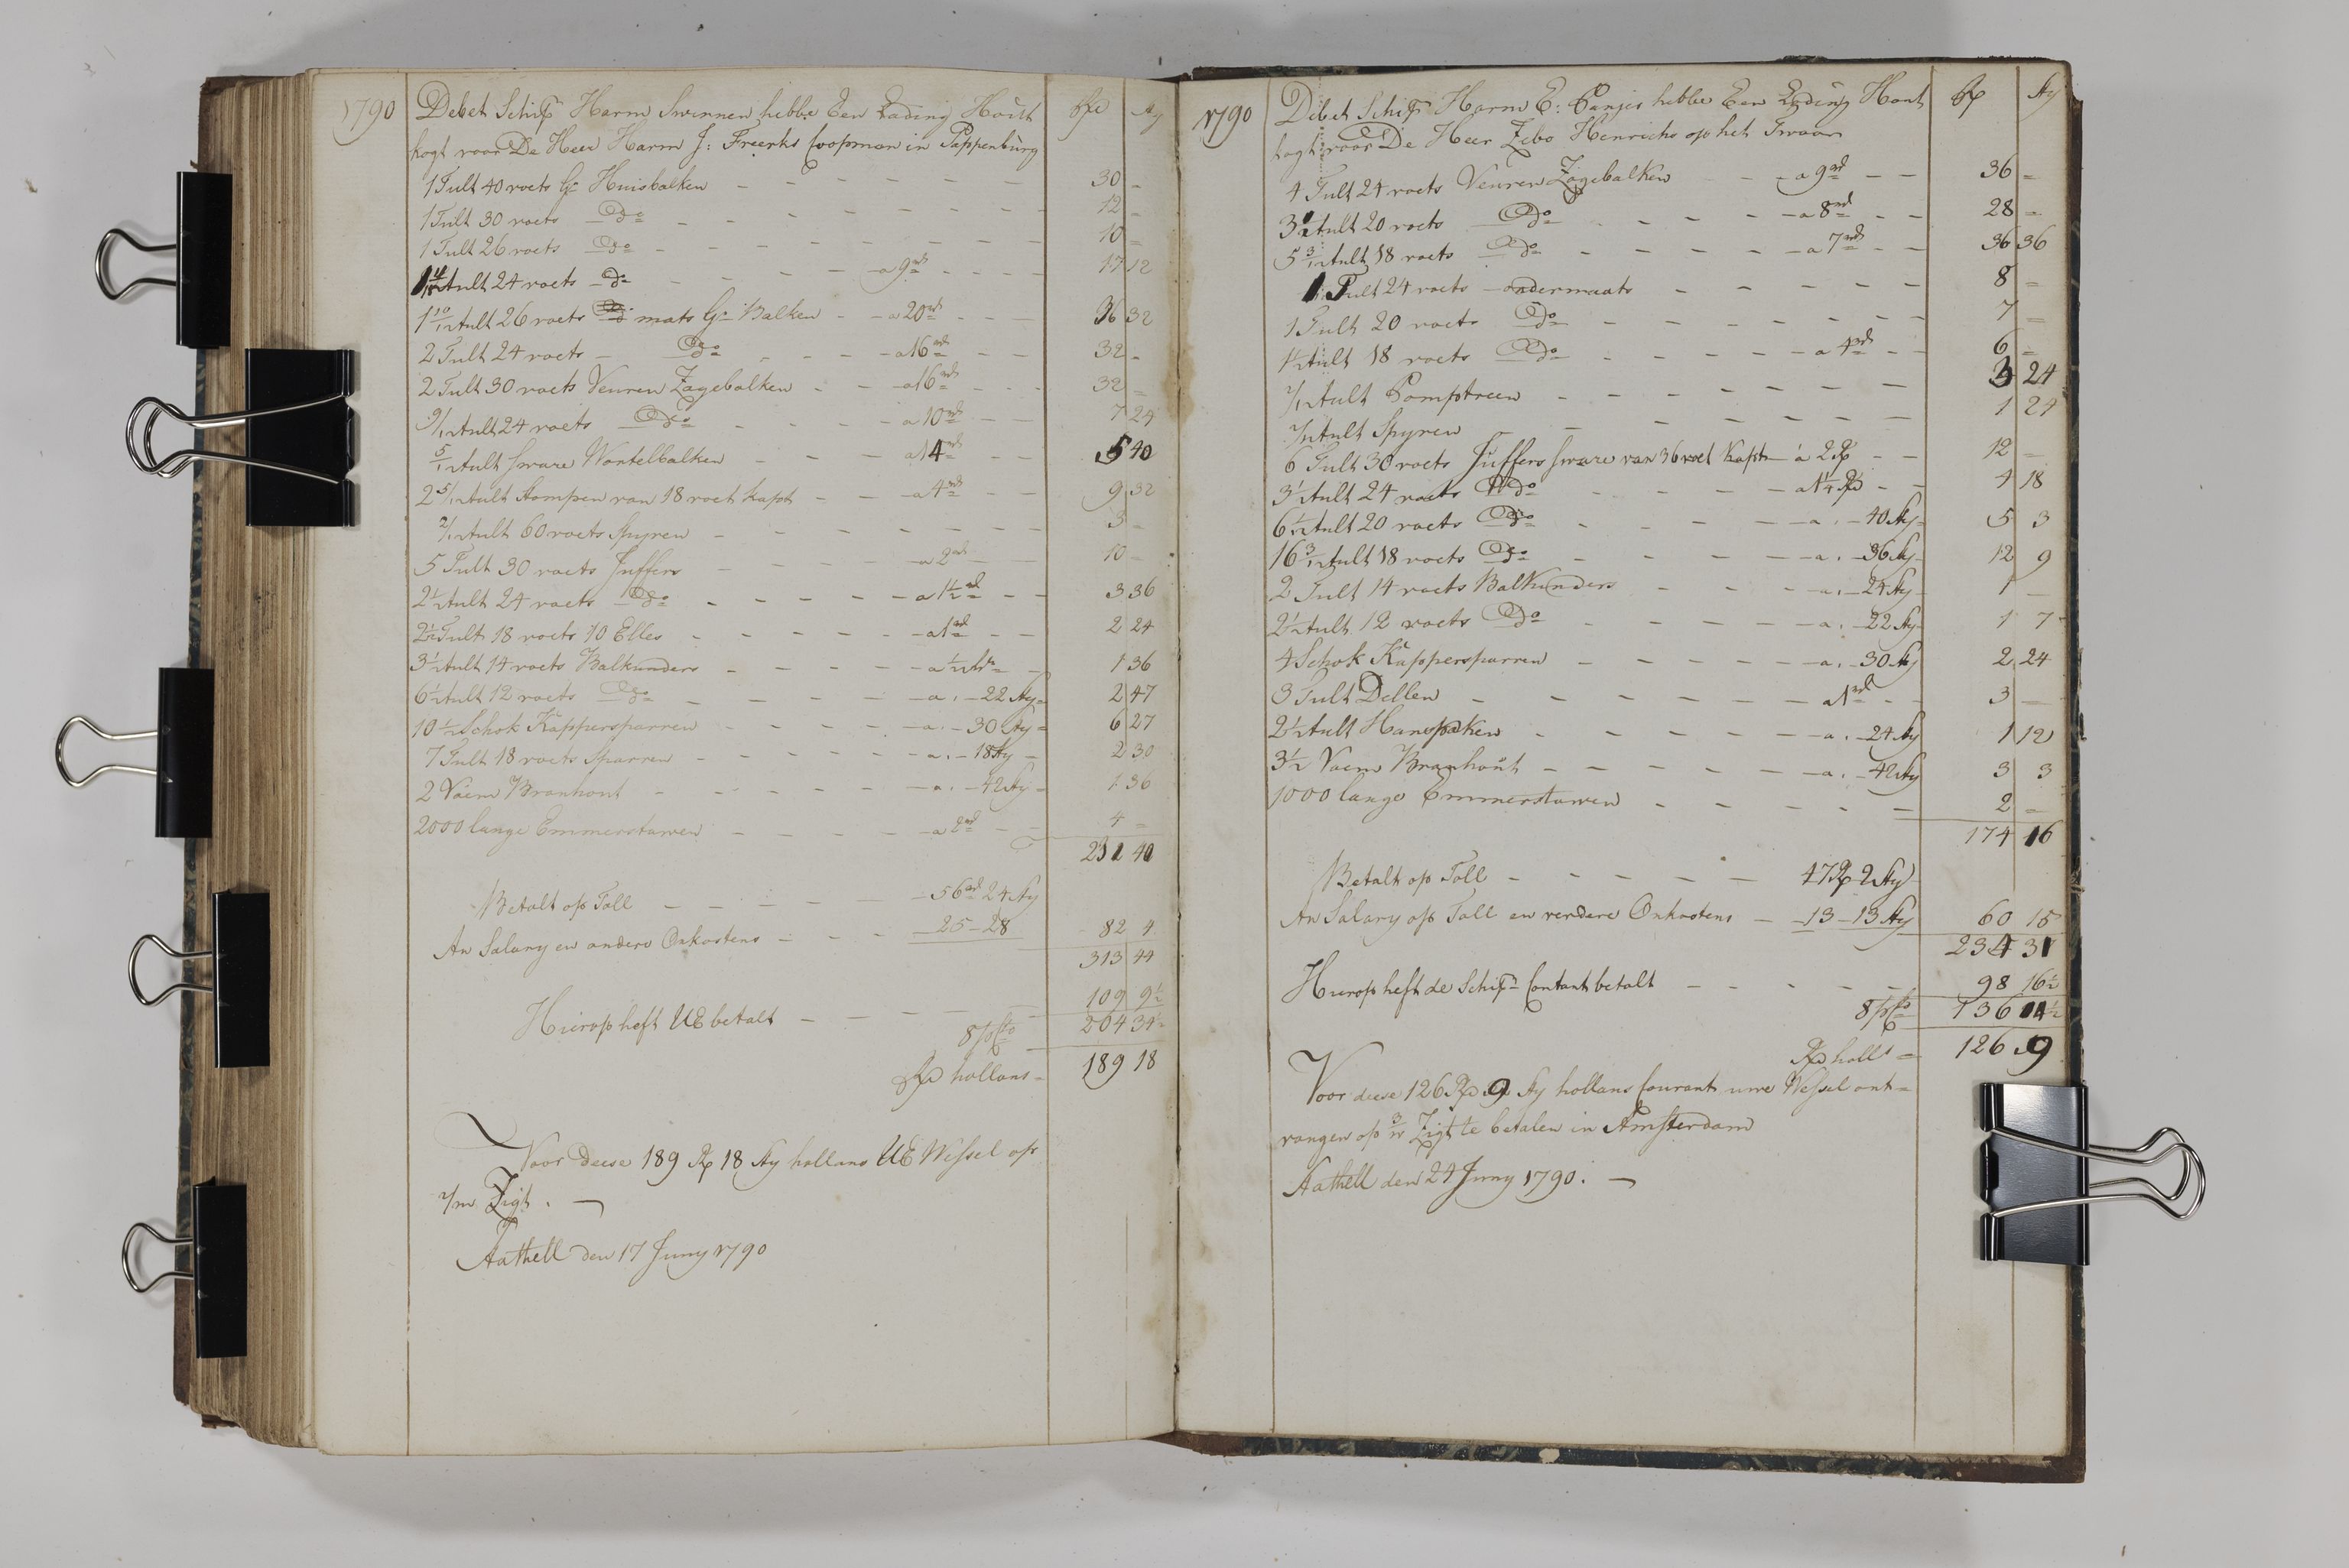 1790 Debet Schipr Harm Swennen hebbe Een Lading Hout Rd Sty
kogt voor De Heer Harm J: Freerks Coopman in Pappenburg
1 Tult 40 voets Gr Huisbalken 30 -
1 Tult 30 voets Do 12 -
1 Tult 26 voets Do 10 -
Tult 24 voets Do a 9rd 17 12
1 10/12 Tult 26 voets mats Gr Balken a 20rd 36 32
2 Tult 24 voets Do a 16rd 32 -
2 Tult 30 voets Veuren Zagebalken a 16rd 32 -
9/12 Tult 24 voets Do a 10rd 7 24
5/12 Tult sware Wortelbalken a 14rd 5 40
2 5/12 Tult Stompen van 18 voet kapt a 4rd 9 32
2/12 Tult 60 voets Spyren 3 -
5 Tult 30 voets Juffers a 2rd 10 -
2½ Tult 24 voets Do a 1½rd 3 36
2½ Tult 18 voets 10 Elles a 1rd 2 24
3½ Tult 14 voets Balkunders a ½ 1 36
6½ Tult 12 voets Do a - 22 Sty 2 47
10½ Schok Kappersparren a - 30 Sty 6 27
7 Tult 18 voets Sparren a - 18 Sty 2 30
2 Vaem Branhout a - 42 Sty 1 36
2000 lange Emmerstawen a 2rd 4 -
231 40
Betalt op Toll 56rd 24 Sty
An Salary en andere Onkostens 25 - 28 82 4
313 44
Hierop heft UE betalt 109 9½
8 prCto 204 34½
Rd hollans 189 18
Voor deese 189 Rd 18 Sty hollans UE Wessel op
2/m Zigt. -
Aathell den 17 Juny 1790
1790 Debet Schipr Harm E: Panjes hebbe Een Lading Hout Rd Sty
kogt voor De Heer Zebo Henrichs op het
4 Tult 24 voets Veuren Zagebalken a 9rd 36 -
3½ Tult 20 voets Do a 8rd 28 -
5 3/12 Tult 18 voets Do a 7rd 36 36
1 Tult 24 voets ondermaats 8 -
1 Tult 20 voets Do 7 -
1½ Tult 18 voets Do a 4rd 6 -
Tult Pompstreen 3 24
Tult Spyren 1 24
6 Tult 30 voets Juffers sware van 36 voet kapt a 2 Rd 12 -
3½ Tult 24 voets Do a 1¼ Rd 4 18
6½ Tult 20 voets Do a - 40 Sty 5 3
16 3/12 Tult 18 voets Do a - 36 Sty 12 9
2 Tult 14 voets Balkunders a - 24 Sty 1 -
2½ Tult 12 voets Do a - 22 Sty 1 7
4 Schok Kappersparren a - 30 Sty 2 24
3 Tult Dellen a 1rd 3 -
2½ Tult Hanspaken a - 24 Sty 1 12
3½ Vaem Branhout a - 42 Sty 3 3
1000 lange Emmerstawen 2 -
174 16
Betalt op Toll 47 Rd 2 Sty
An Salary op Toll en verdere Onkostens 13 - 13 Sty 60 15
234 31
Hierop heft de Schipr Contant betalt 98 16½
8 prCto 136 14½
Rd holls 126 9
Voor deese 126 Rd 9 Sty hollans Courant uwe Wessel ont=
vangen op 3/w Zigt te betalen in Amsterdam
Aathell den 24 Juny 1790. -